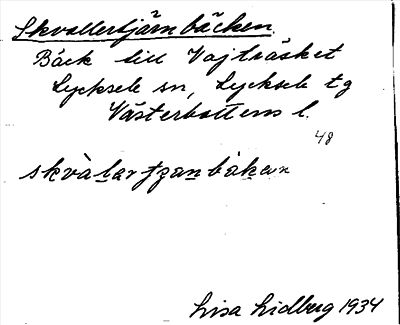 Skvallertjärnbäcken.
Bäck till Vajträsket
Lycksele sn, Lycksele tg
Västerbottens l.
48
Lisa Lidberg 1934